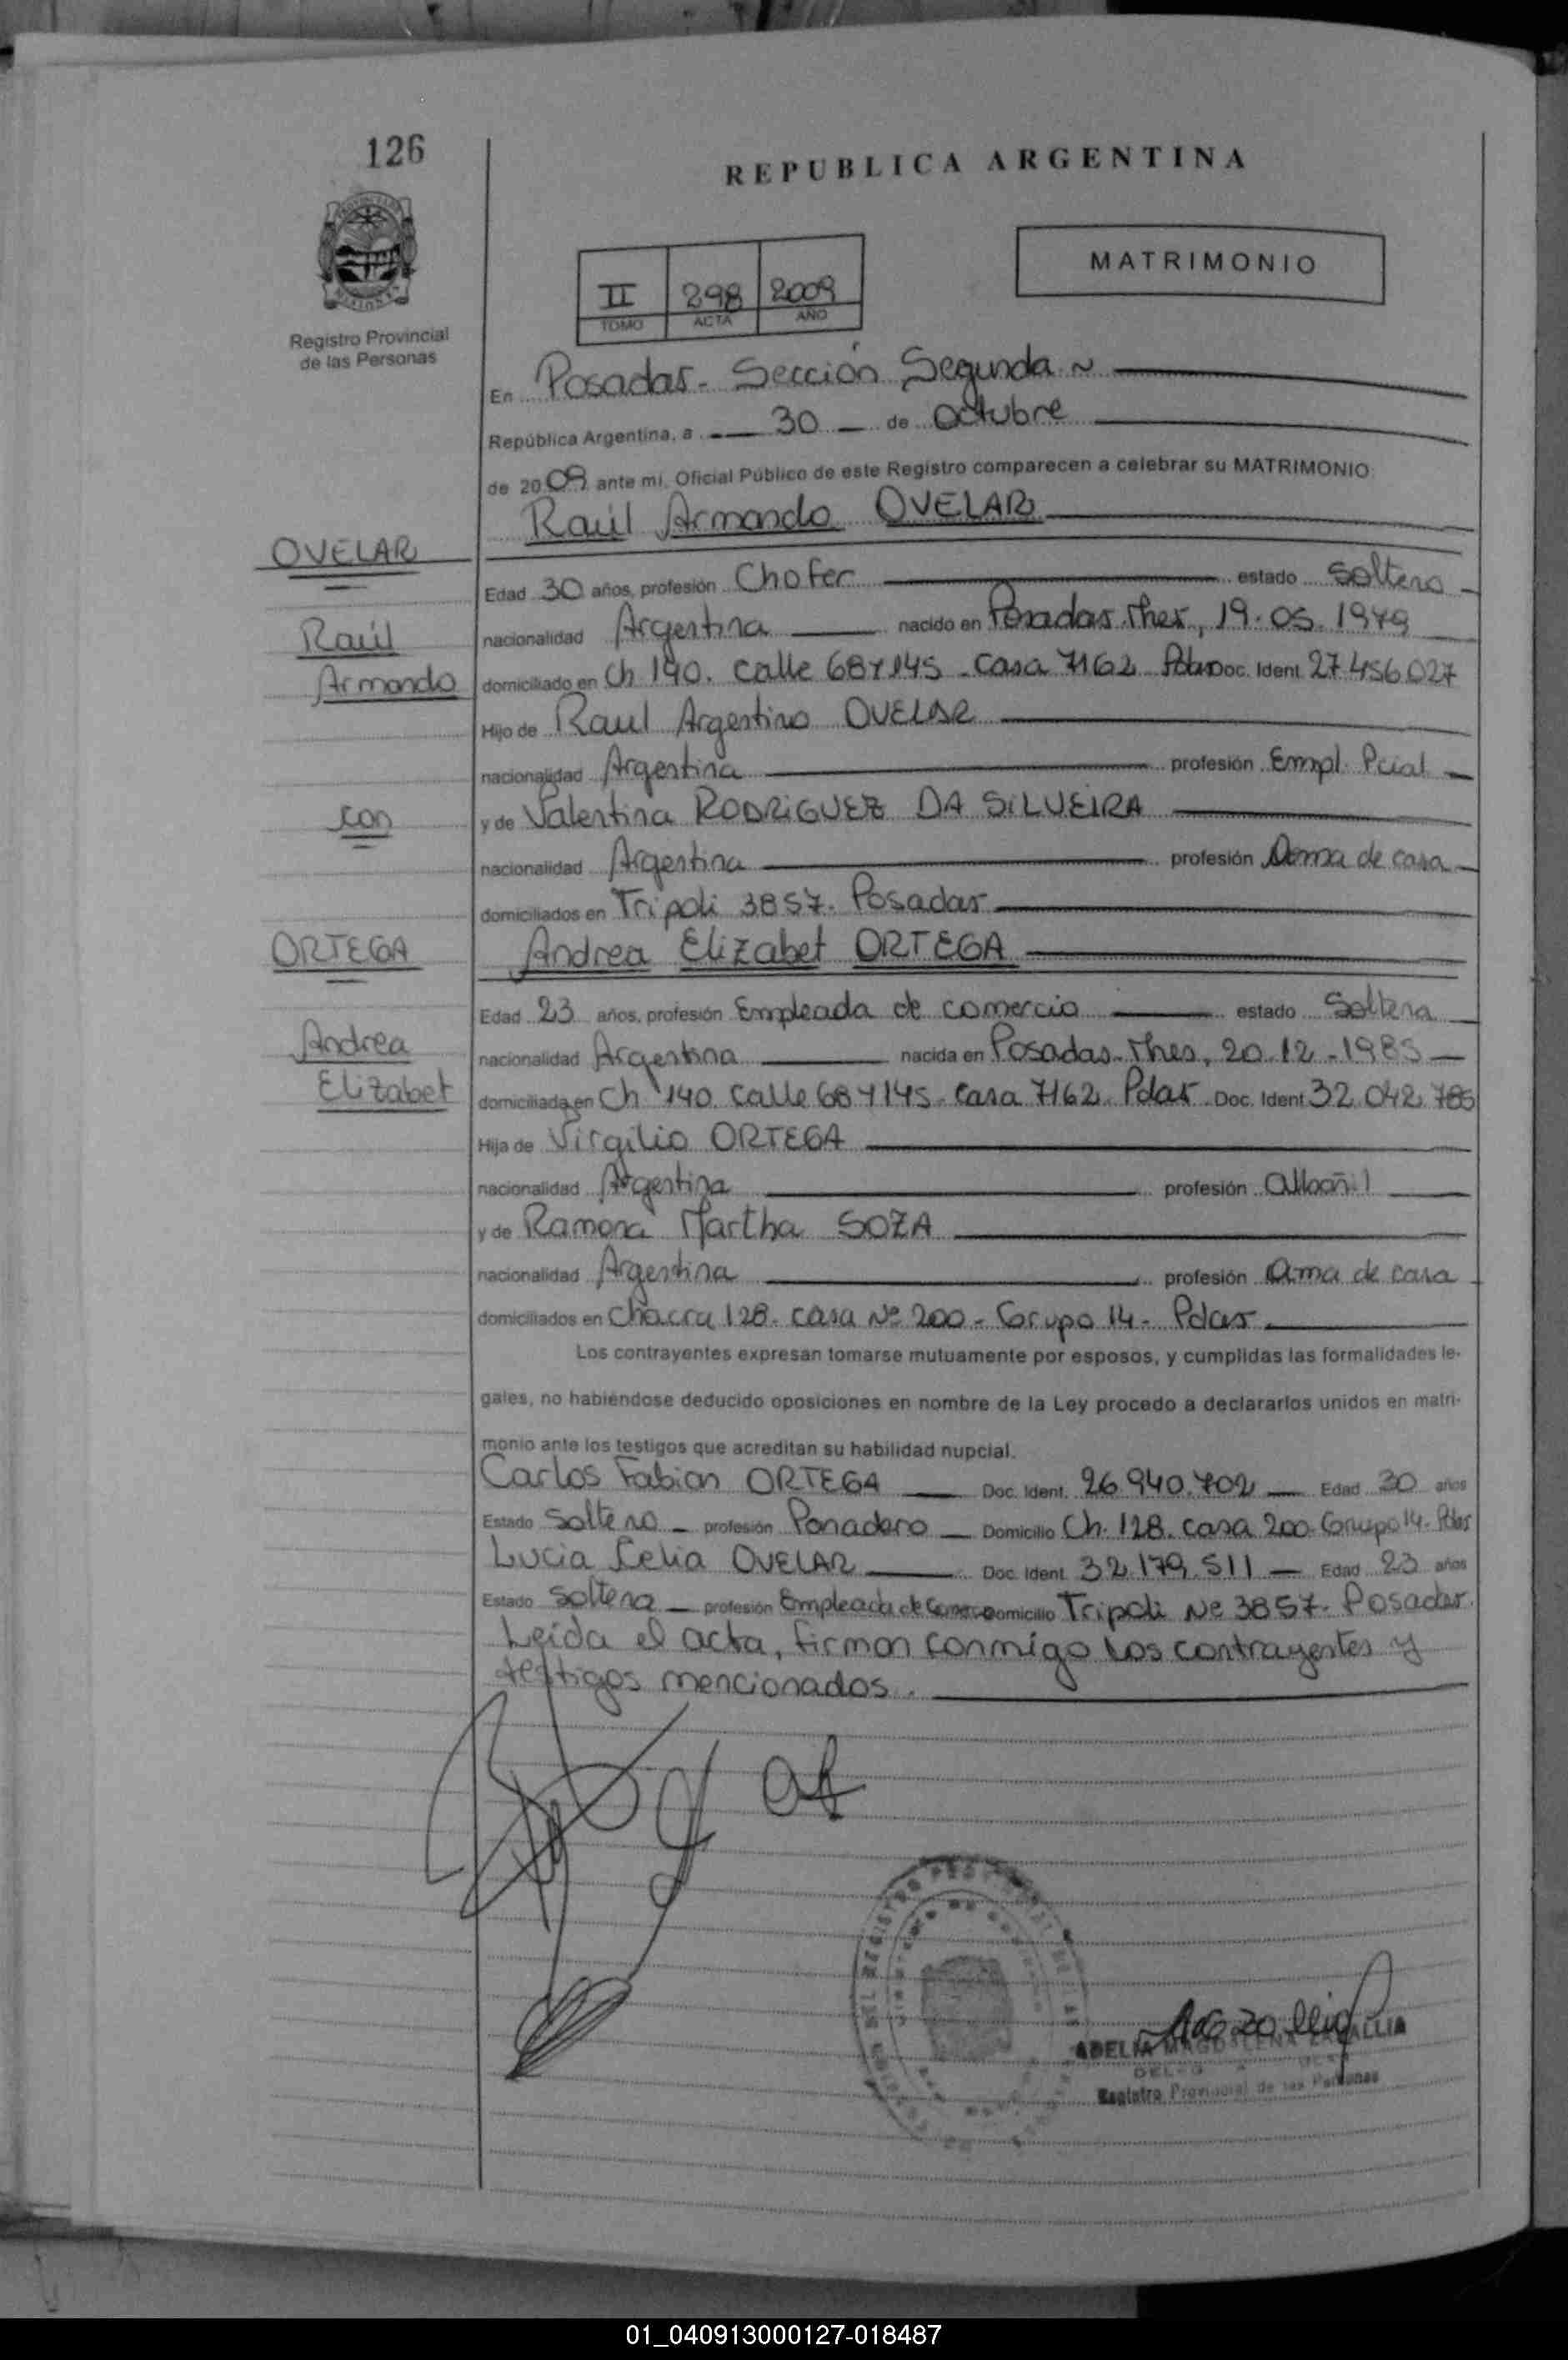 126
REPUBLICA ARGENTINA
MATRIMONIO
II 298 2009
TOMO ACTA AÑO
Registro Provincial
de las Personas
En Posadas - Sección Segunda ~
República Argentina, a 30 de Octubre
de 2009 ante mi, Oficial Público de este Registro comparecen a celebrar su MATRIMONIO:
Raúl Armando OVELAR
OVELAR
Edad 30 años, profesión Chofer estado Soltero
Raúl
nacionalidad Argentina nacido en Posadas. Mnes, 19.05.1979
Armando
domiciliado en Ch 140. Calle 68 y 145 - Casa 7162 Pdas Doc. Ident. 27.456.027
Hijo de Raul Argentino OVELAR
nacionalidad Argentina profesión Empl. Pcial
con
y de Valentina RODRIGUEZ DA SILVEIRA
nacionalidad Argentina profesión Ama de casa
domiciliados en Tripoli 3857. Posadas
ORTEGA
Andrea Elizabet ORTEGA
Edad 23 años, profesión Empleada de comercio estado Soltera
Andrea
nacionalidad Argentina nacida en Posadas - Mnes, 20.12.1985
Elizabet
domiciliada en Ch 140. Calle 68 y 145 - Casa 7162. Pdas Doc. Ident. 32.042.785
Hija de Virgilio ORTEGA
nacionalidad Argentina profesión Albañil
y de Ramona Martha SOZA
nacionalidad Argentina profesión Ama de casa
domiciliados en Chacra 128. Casa Nº 200 - Grupo 14 - Pdas
Los contrayentes expresan tomarse mutuamente por esposos, y cumplidas las formalidades le-
gales, no habiéndose deducido oposiciones en nombre de la Ley procedo a declararlos unidos en matri-
monio ante los testigos que acreditan su habilidad nupcial.
Carlos Fabian ORTEGA Doc. Ident. 26.940.702 Edad 30 años
Estado Soltero profesión Panadero Domicilio Ch. 128. Casa 200. Grupo 14 - Pdas
Lucia Celia OVELAR Doc. Ident. 32.179.511 Edad 23 años
Estado Soltera profesión Empleada de Comerc Domicilio Tripoli Nº 3857. Posadas.
Leida el acta, firman conmigo los contrayentes y
testigos mencionados.
ADELIA MAGDALENA
Registro Provincial de las Personas
01_040913000127-018487